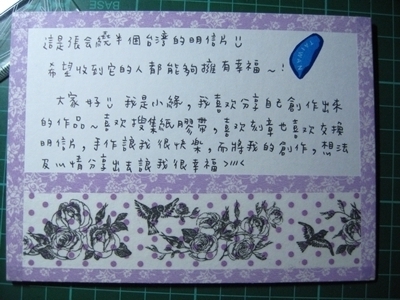 這是張會繞半個台灣的明信片
希望收到它的人都能夠擁有幸福~!
大家好!! 我是小綠,我喜歡分享自己創作出來
的作品~喜歡搜集紙膠帶,喜歡刻章也喜歡交換
明信片,手作讓我很快樂,而將我的創作,想法
及心情分享出去讓我很幸福>///<
TAIWAN